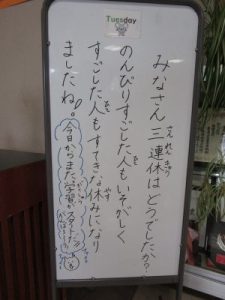 Tuesday
みなさん三連休はどうでしたか?
さんれんきゅう
のんびりすごした人もいそがしく
すごした人もすてきな休みになり
ましたね。
今日からまた学習がスタート